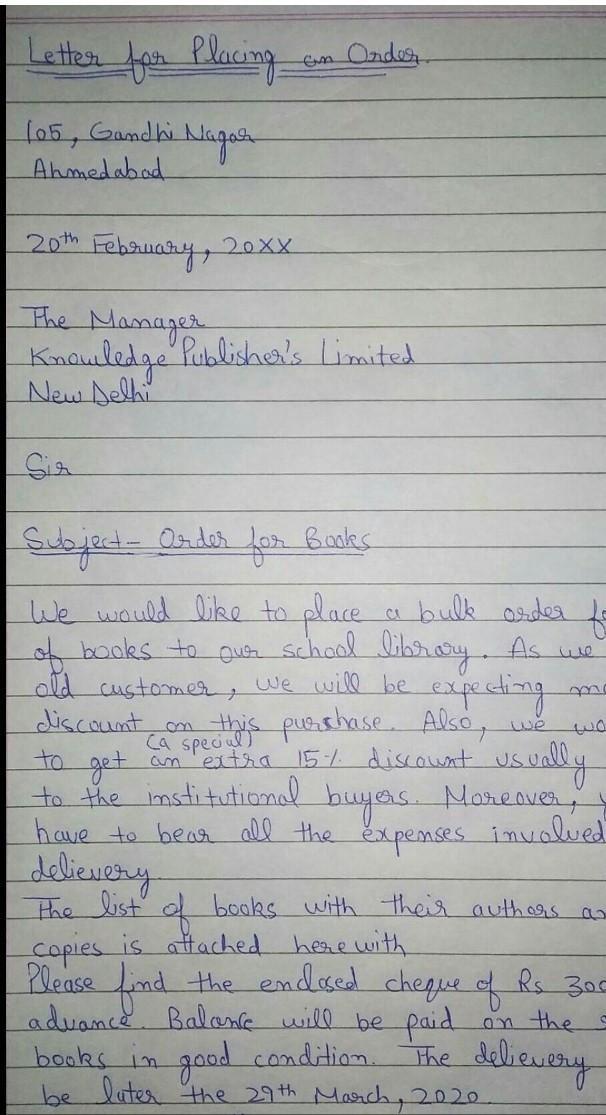 Letter for Placing an Order.
105, Gandhi Nagar
Ahmedabad
20th February, 20XX
The Manager
Knowledge Publisher's Limited
New Delhi
Sir
Subject- Order for Books
We would like to place a bulk order
of books to our school library. As we
old customer, we will be expecting
discount on this purchase. Also, we
(a special)
to get an extra 15% discount usually
to the institutional buyers. Moreover,
have to bear all the expenses involved
delievery
The list of books with their authors
copies is attached herewith
Please find the enclosed cheque of Rs 300
advance. Balance will be paid on the
books in good condition. The delievery
be later the 29th March, 2020.